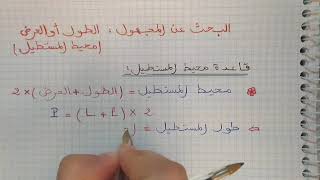 البحث عن المجهول: الطول أو العرض
(محيط المستطيل)
قاعدة محيط المستطيل:
محيط المستطيل = (الطول + العرض) × 2
P = (L + l) × 2
طول المستطيل =